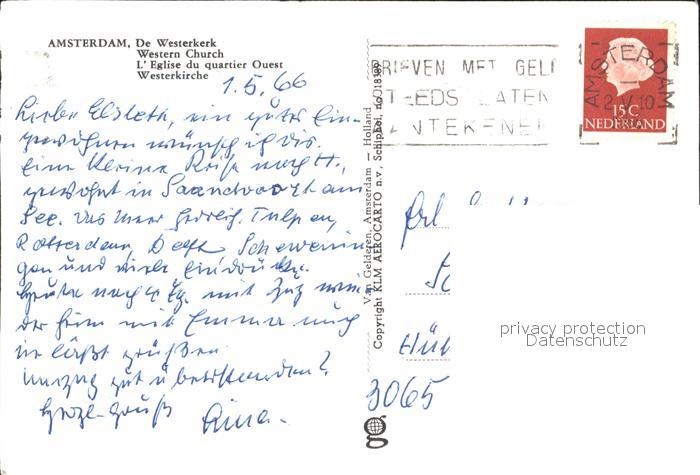 AMSTERDAM, De Westerkerk
Western Church
L'Eglise du quartier Ouest
Westerkirche
1.5.66
Liebe Elsbeth, ein gutes Ein-
gewöhnen wünsch ich dir.
Eine kleine Reise
gewohnt in Zaandvoort am
See. Das Meer herrlich. Tulpen,
Rotterdam, Delft Schevenin
gen und viele Eindrücke.
Heute nach 4 Tg. mit Zug wie
der heim mit Emma
ie läßt grüßen
Umzug gut überstanden?
Herzl. Gruß
Van Gelderen, Amsterdam — Holland
Copyright KLM AEROCARTO n.v., Schiphol, no. 18389
BRIEVEN MET GEL
STEEDS LATEN
AANTEKENEN
AMSTERDAM
2.V.10
15c
NEDERLAND
Frl
Hü
3065
g
privacy protection
Datenschutz